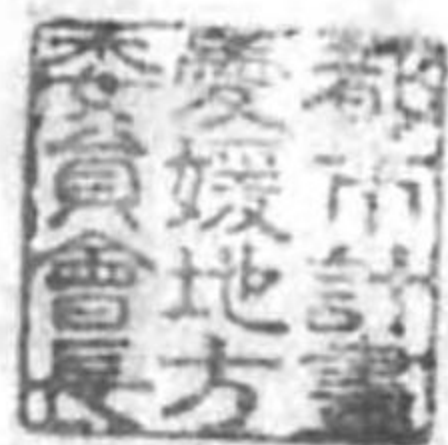 都市計畫
愛媛地方
委員會長